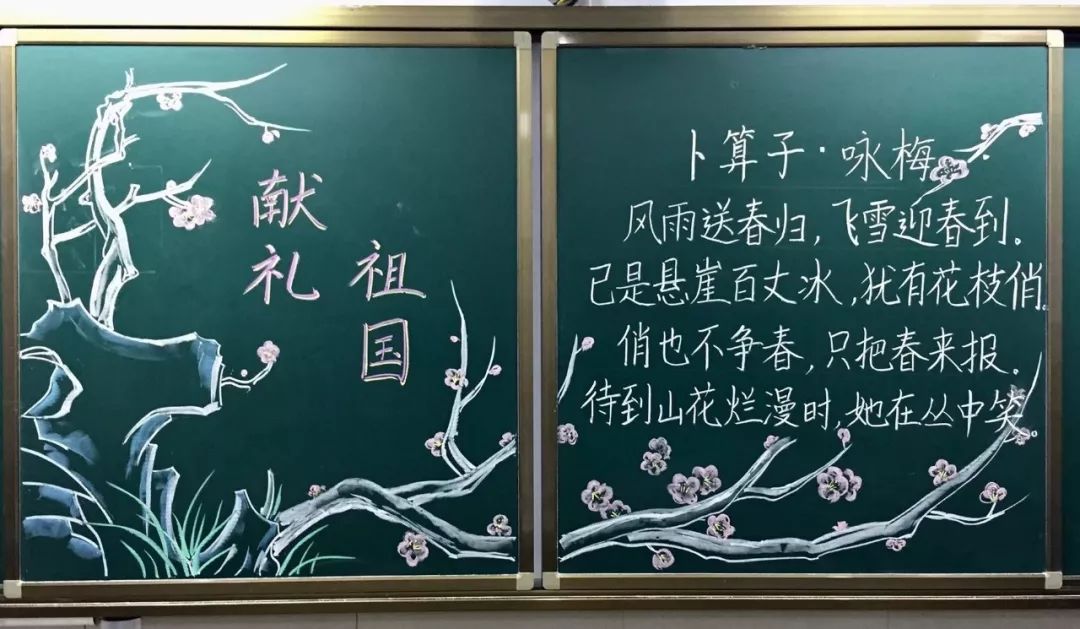 献礼
祖国
卜算子·咏梅
风雨送春归，飞雪迎春到。
已是悬崖百丈冰，犹有花枝俏。
俏也不争春，只把春来报。
待到山花烂漫时，她在丛中笑。